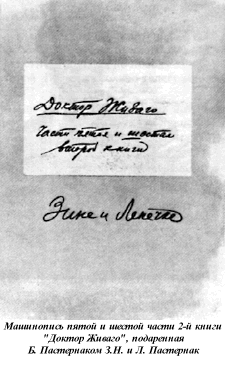 Доктор Живаго
Части пятая и шестая
второй книги
Зине и Лёнечке
Машинопись пятой и шестой части 2-й книги
"Доктор Живаго", подаренная
Б. Пастернаком З.Н. и Л. Пастернак